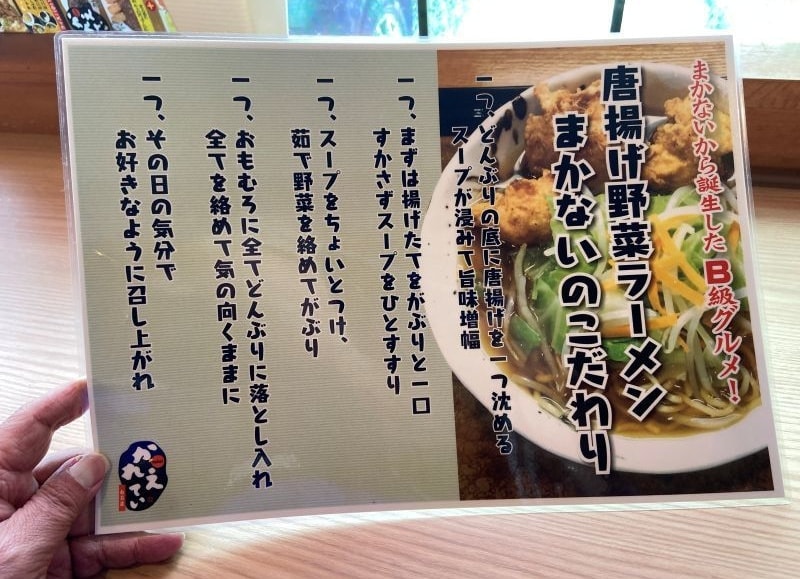 まかないから誕生したB級グルメ!
唐揚げ野菜ラーメン
まかないのこだわり
一つ、どんぶりの底に唐揚げを一つ沈める
スープが浸みて旨味増幅
一つ、まずは揚げたてをがぶりと一口
すかさずスープをひとすすり
一つ、スープをちょいとつけ、
茹で野菜を絡めてがぶり
一つ、おもむろに全てどんぶりに落とし入れ
全てを絡めて気の向くままに
一つ、その日の気分で
お好きなように召し上がれ